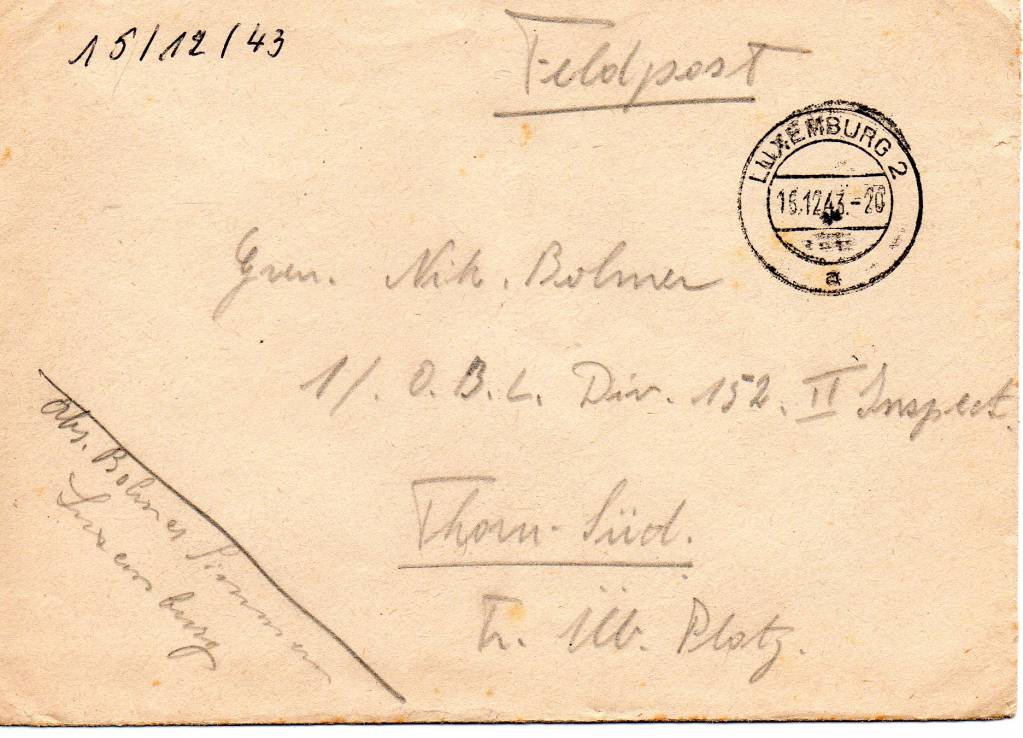 15/12/43
Feldpost
LUXEMBURG 2
15.12.43.-20
a
Gren. Nik. Bolmer
1/. O. B. L. Div. 152. II Inspekt.
Thorn-Süd.
Tr. Üb. Platz.
Abs. Bolmer Simmern
Luxemburg